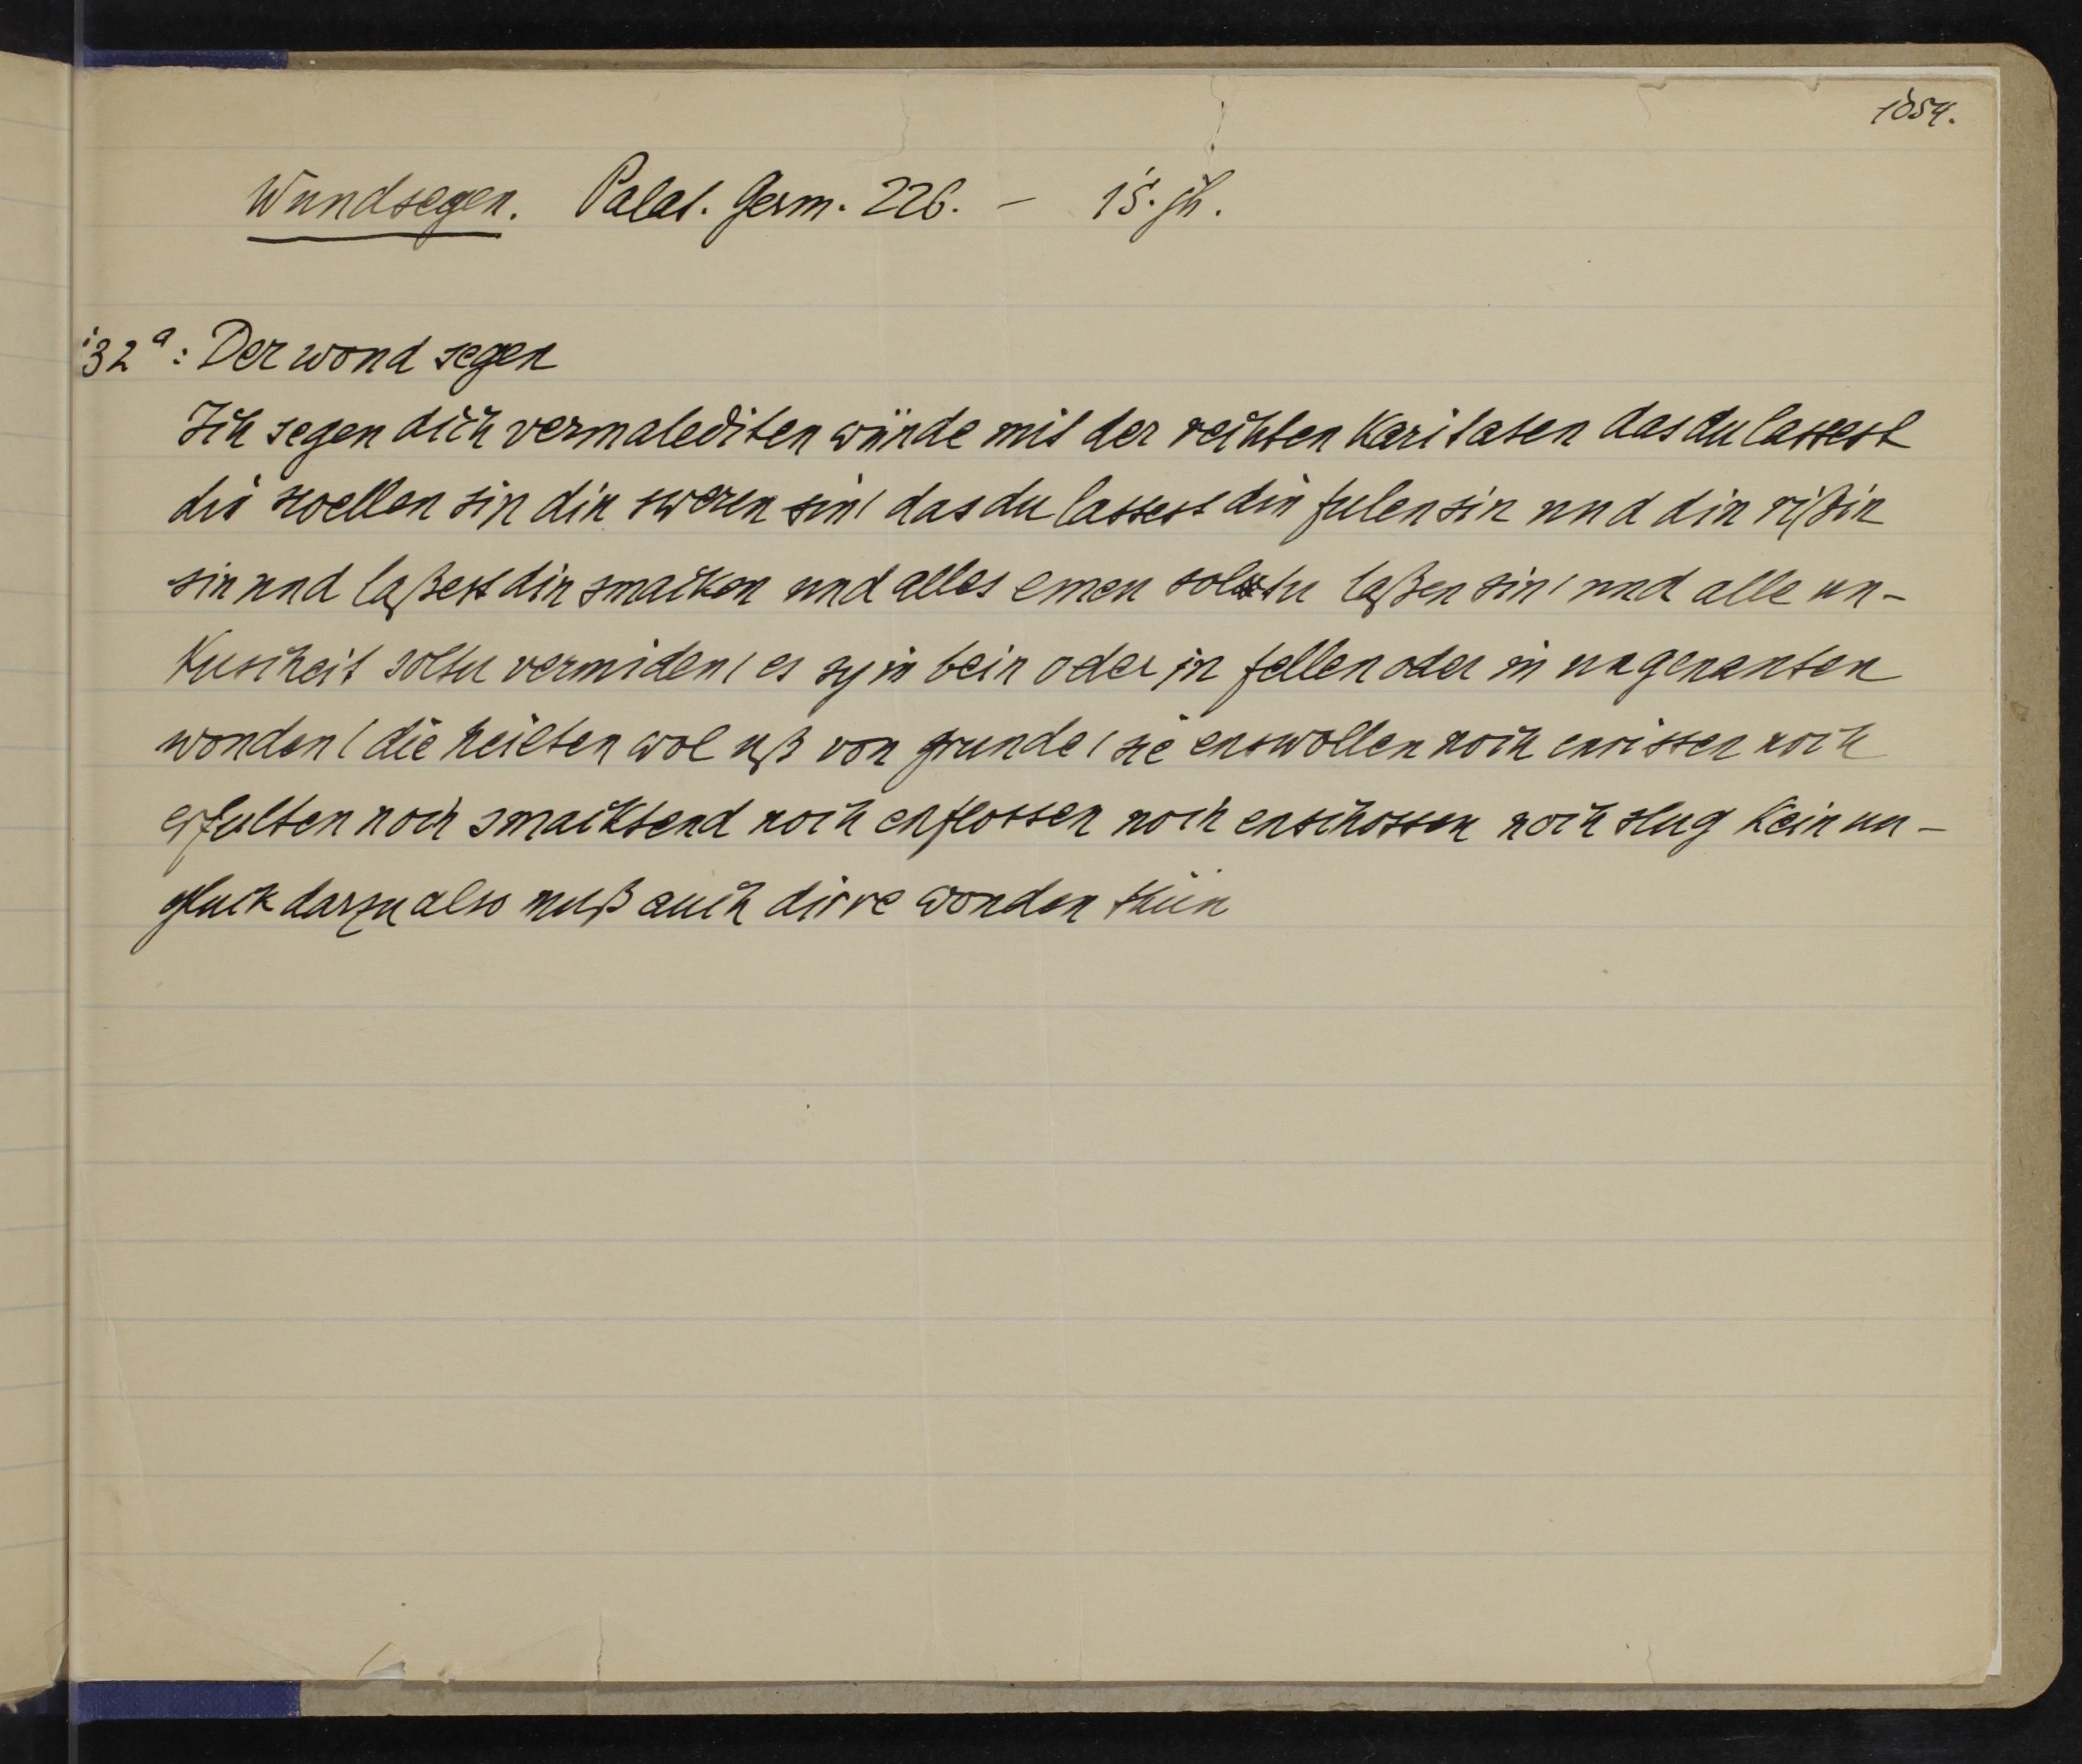 1054.
Wundsegen. Palat. Germ. 226. – 15. jh.
132ᵃ: Der wond segen
Ich segen dich vermalediten wünde mit der rechten Karitaten das du lassest
din swellen sin din sweren sin / das du lassest din fulen sin und din rißin
sin und laßest din smacken und alles emen soltu laßen sin / und alle un-
kuscheit soltu vermiden / es sy in bein oder in fellen oder in ungenanten
wonden / die heilten wol uß von grunde / sie enswollen noch enrissen noch
enfulten noch smacktend noch enflossen noch enschossen noch slug kein un-
gluck darzu also muß auch dirre wonden thün